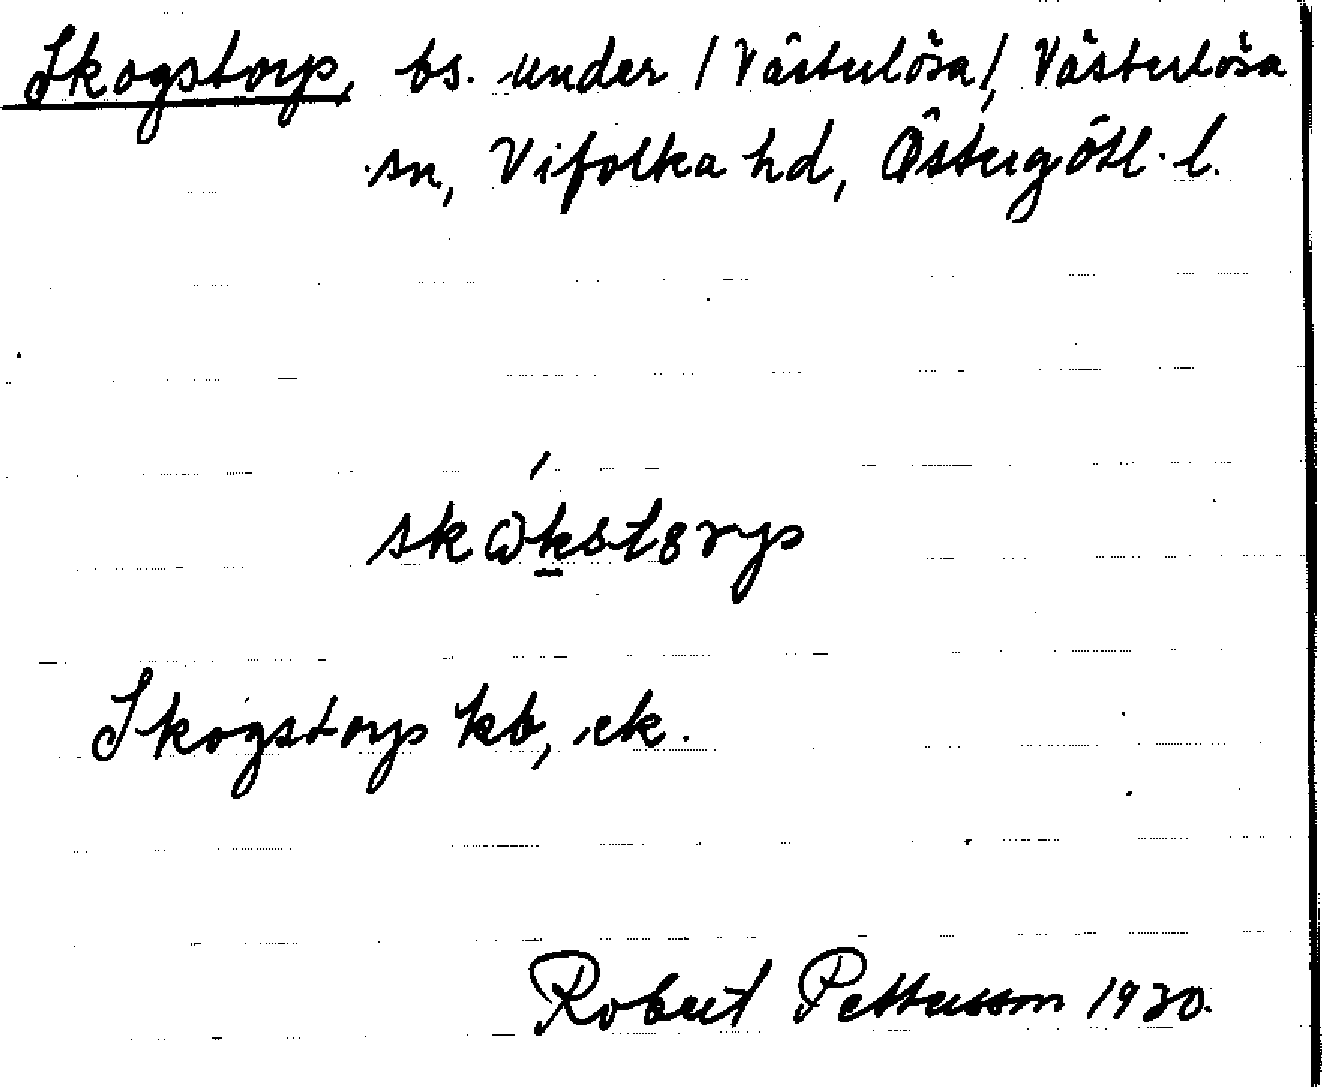 Skogstorp, bs. under /Västerlösa/, Västerlösa
sn, Vifolka hd, Östergötl. l.
skωkstȣrp
Skogstorp kb, ek.
Robert Pettersson 1930.